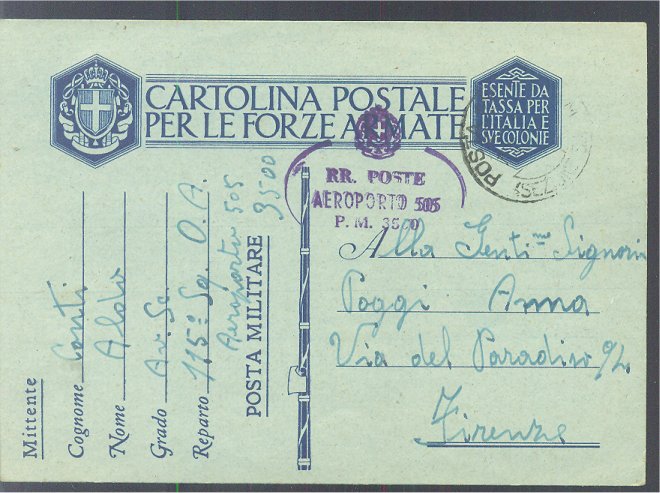 CARTOLINA POSTALE
PER LE FORZE ARMATE
ESENTE DA
TASSA PER
L'ITALIA E
SVE COLONIE
POSTA
SEZ
RR. POSTE
AEROPORTO 505
P. M. 3500
Mittente
Cognome Conti
Nome Aldo
Grado Av. Sc.
Reparto 115ª Sq. O.A.
Aeroporto 505
POSTA MILITARE 3500
Alla Genti.me Signorin
Poggi Anna
Via del Paradiso 9/2
Firenze